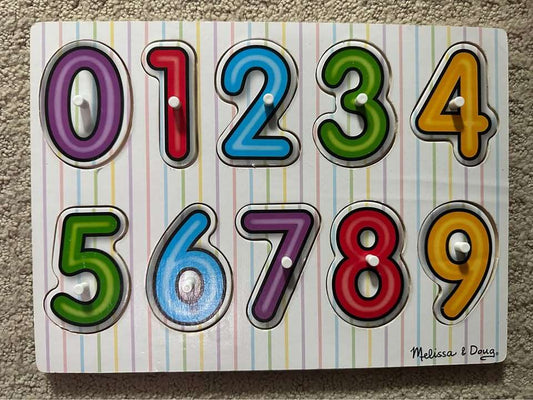 0 1 2 3 4
5 6 7 8 9
Melissa & Doug®